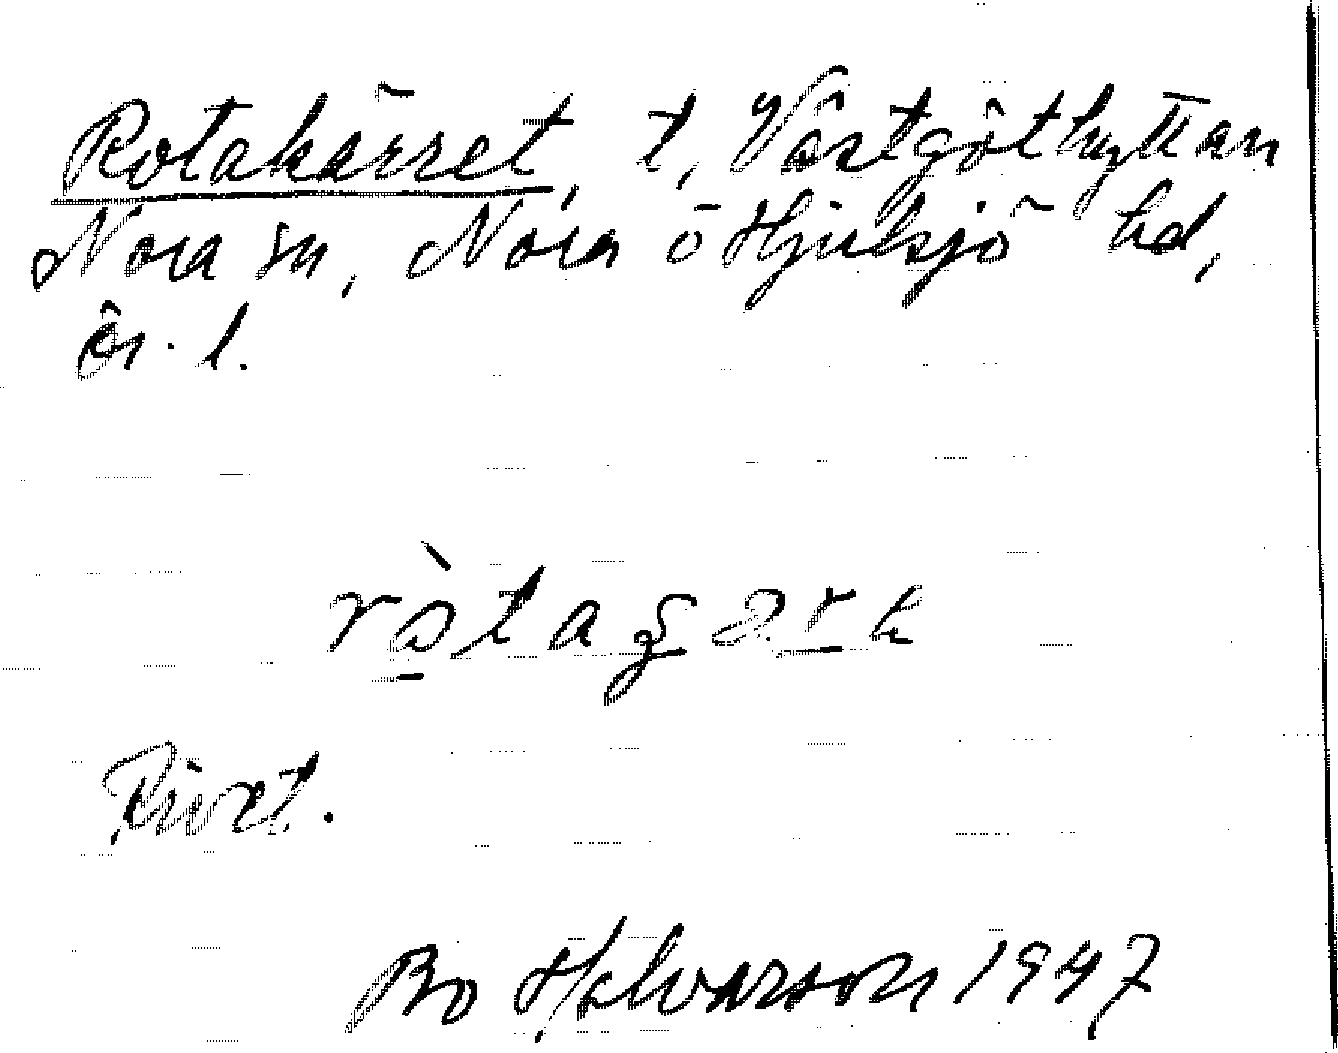 Rotakärret, t, Västgöthyttan
Nora sn, Nora o Hjulsjö hd,
Ör. l.
Rivet.
Bo Halvarson 1947